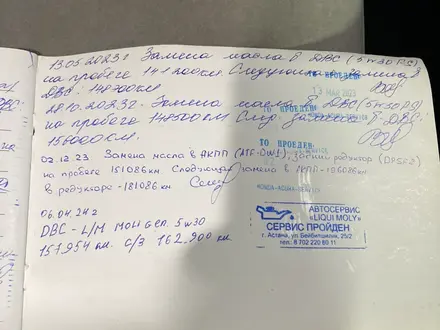 13.05.2023г Замена масла в ДВС (5w30 FS)
на пробеге 141200км Следующая замена в
ДВС. 148700км
28.10.2023г. Замена масла в ДВС (5w30
на пробеге 148500км След. замена в ДВС.
156000км.
ТО ПРОЕДЕН:
13 МАЙ 2023
ТО ПРОЕДЕН:
02.12.23 Замена масла в АКПП (ATF-DW1), Задний редуктор (DPSF2)
на пробеге 151086км Следующая замена в АКПП-196086км
в редукторе-181086км
ТО ПРОЕДЕН:
HONDA-ACURA-CENTER
06.04.24г
ДВС - L/M MOLIGEN 5w30
157.954км. С/З 162.900 км
АВТОСЕРВИС
«LIQUI MOLY»
СЕРВИС ПРОЙДЕН
г. Астана, ул. Бейбитшилик, 25/2
тел.: 8 702 220 80 11